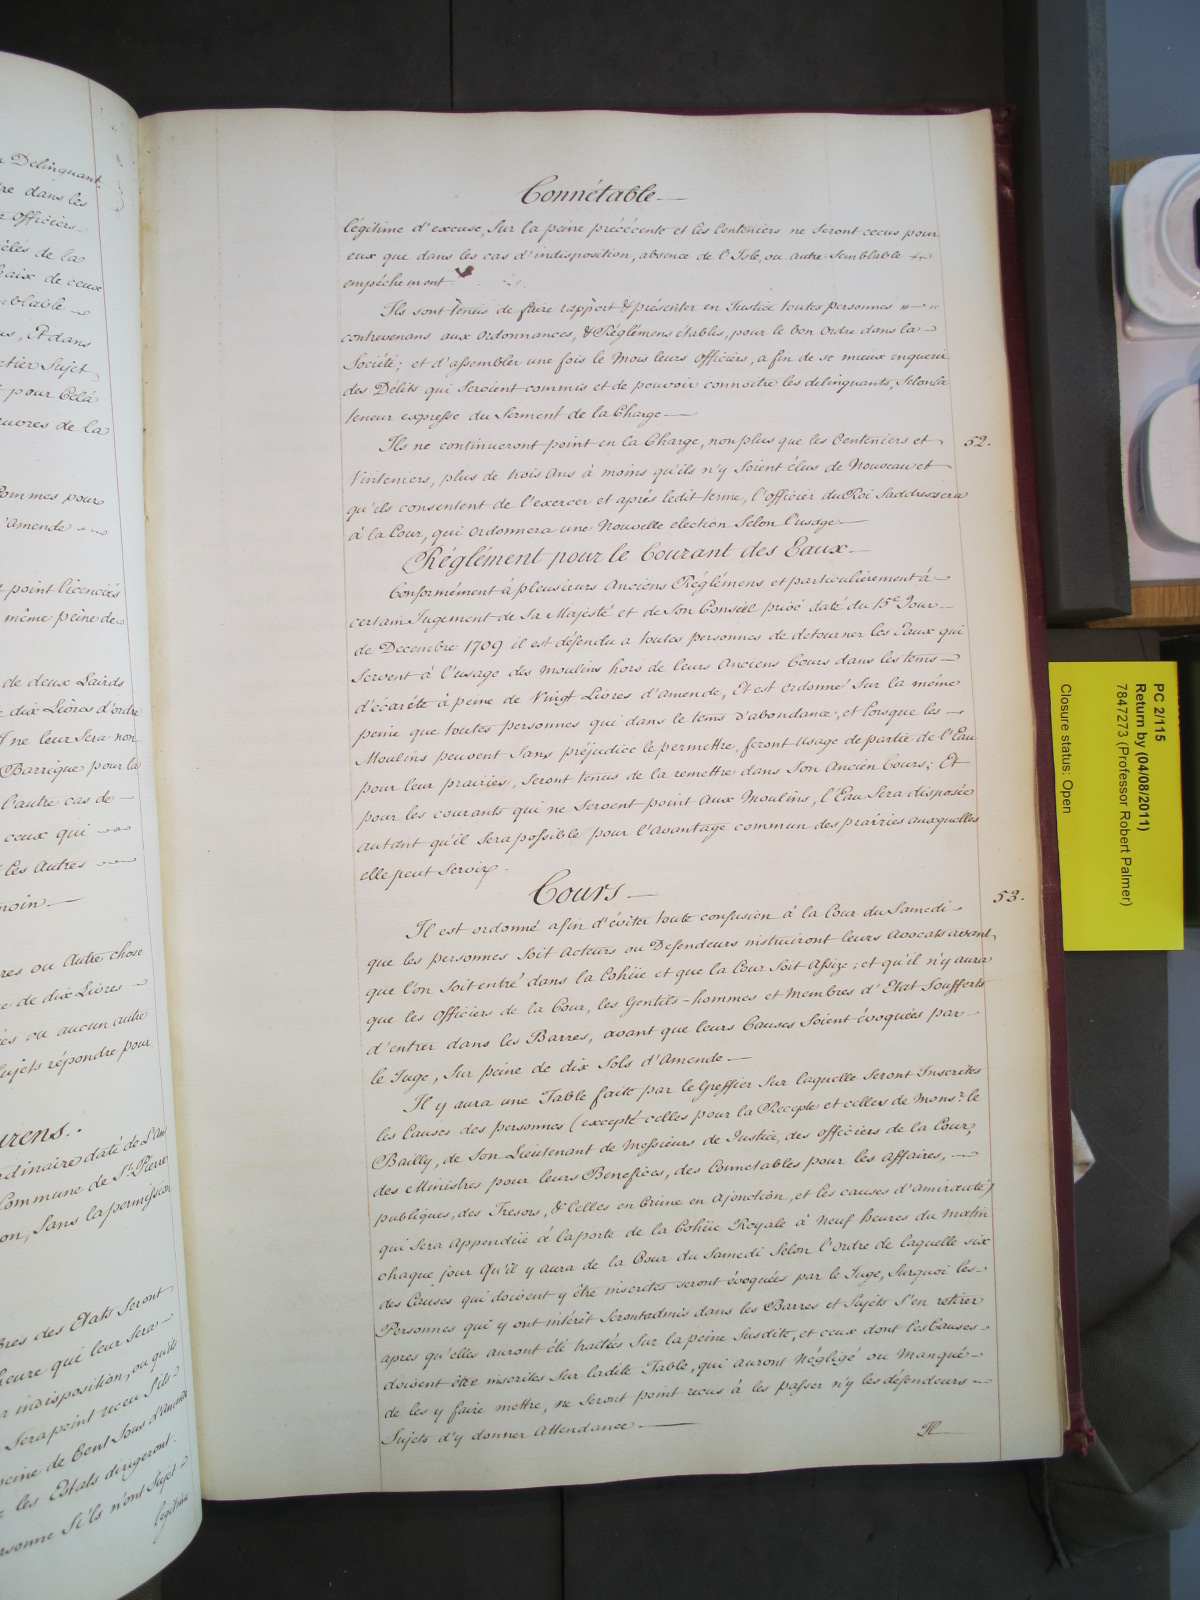 n Delinquant.
re dans les
r Officiers
cles de la
raix de ceux
mblable
us, Et dans
ctier Sujet
t pour Celá
euvres de la
ommes pour
'amende
t point licenciés
même peine de
de deux Liards
t dix Livres d'ordre
ne leur Sera non
Barrique pour la
l'autre cas de
ceux qui
Les Autres
moin
res ou Autre chose
e de dix Livres
és ou aucun autre
Sujets répondre pour
urens.
dinaire daté de l'An
Commune de St. Pierre
on, Sans la permission
bres des Etats Seront
heure qui leur Sera
indisposition, ou qu'ils
Sera point receu S'ils
peine de Cent Sous d'amende
r les Estats dirigeront
rsonne Si ils n'ont Sujet
legitime
Connétable
légitime d'excuse, Sur la peine précécente et les Centeniers ne Seront ceçus pour
eux que dans les cas d'indisposition, absence de l'Isle, ou autre Semblable
empéchement
Ils sont tenus de faire rapport & présenter en Justice toutes personnes
contrevenans aux Ordonnances, & Réglémens établis, pour le bon Ordre dans la
Société; et d'assembler une fois le Mois leurs Officiers, a fin de se mieux enquerir
des Délits qui Seroient commis et de pouvoir connoitre les delinquants, Selon la
teneur expresse du Serment de la Charge
Ils ne continueront point en la Charge, non plus que les Centeniers et
Vinteniers, plus de trois Ans à moins qu'ils n'y Soient élus de Nouveau et
52.
qu'ils consentent de l'exercer et aprés ledit terme, l'officier du Roi Saddressera
à la Cour, qui Ordonnera une Nouvelle election Selon l'usage
Réglément pour le Courant des Eaux
Conformément à plusieurs Anciens Réglémens et particuliérement á
certain Jugement de Sa Majesté et de Son Conseil privé daté du 15e. Jour
de Decembre 1709 il est défendu a toutes personnes de detourner les Eaux qui
Servent à l'usage des Moulins hors de leurs Anciens Cours dans les tems
d'écaréte à peine de Vingt Livres d'amende, Et est ordonné Sur la même
peine que toutes personnes qui dans le tems d'abondance, et lorsque les
Moulins peuvent Sans préjudice le permettre, feront Usage de partie de l'Eau
pour leur prairies, Seront tenus de la remettre dans Son Ancien Cours; Et
pour les courants qui ne Servent point Aux Moulins, l'Eau Sera disposée
autant qu'il Sera possible pour l'avantage commun des prairies auxquelles
elle peut Servir.
Cours
53.
Il est ordonné afin d'éviter toute confusion á la Cour du Samedi
que les personnes Soit Acteurs ou Defendeurs instruiront leurs Avocats avant
que l'on Soit entré dans la Cohüe et que la Cour Soit Assize; et qu'il n'y aura
que les Officiers de la Cour, les Gentils-hommes et Membres d'Etat Soufferts
d'entrer dans les Barres, avant que leurs Causes Soient évoquées par
le Juge, Sur peine de dix Sols d'Amende
Il y aura une Table faite par le Greffier Sur laquelle Seront Inscrites
les Causes des personnes (excepté celles pour la Recepte et celles de Monsr. le
Bailly, de Son Lieutenant de Messieurs de Justice, des Officiers de la Cour,
des Ministres pour leurs Benefices, des Connetables pour les affaires,
publiques, des Tresors, & Celles en Crime en Ajonction, et les causes d'amirauté)
qui Sera Appendüe á la porte de la Cohüe Royale à Neuf heures du Matin
chaque jour Qu'il y aura de la Cour du Samedi Selon l'ordre de laquelle six
des Causes qui doivent y être inscrites seront évoquées par le Juge, Surquoi les
Personnes qui y ont intérêt Seront admis dans les Barres et Sujets S'en retirer
apres qu'elles auront été traitées Sur la peine Susdite, et ceux dont les Causes
doivent être inscrites Sur ladite Table, qui aurons Négligé ou Manqué
de les y faire mettre, ne Seront point recus à les passer n'y les défendeurs
Sujets d'y donner Attendance
Il
PC 2/115
Return by (04/08/2011)
7847273 (Professor Robert Palmer)
Closure status: Open